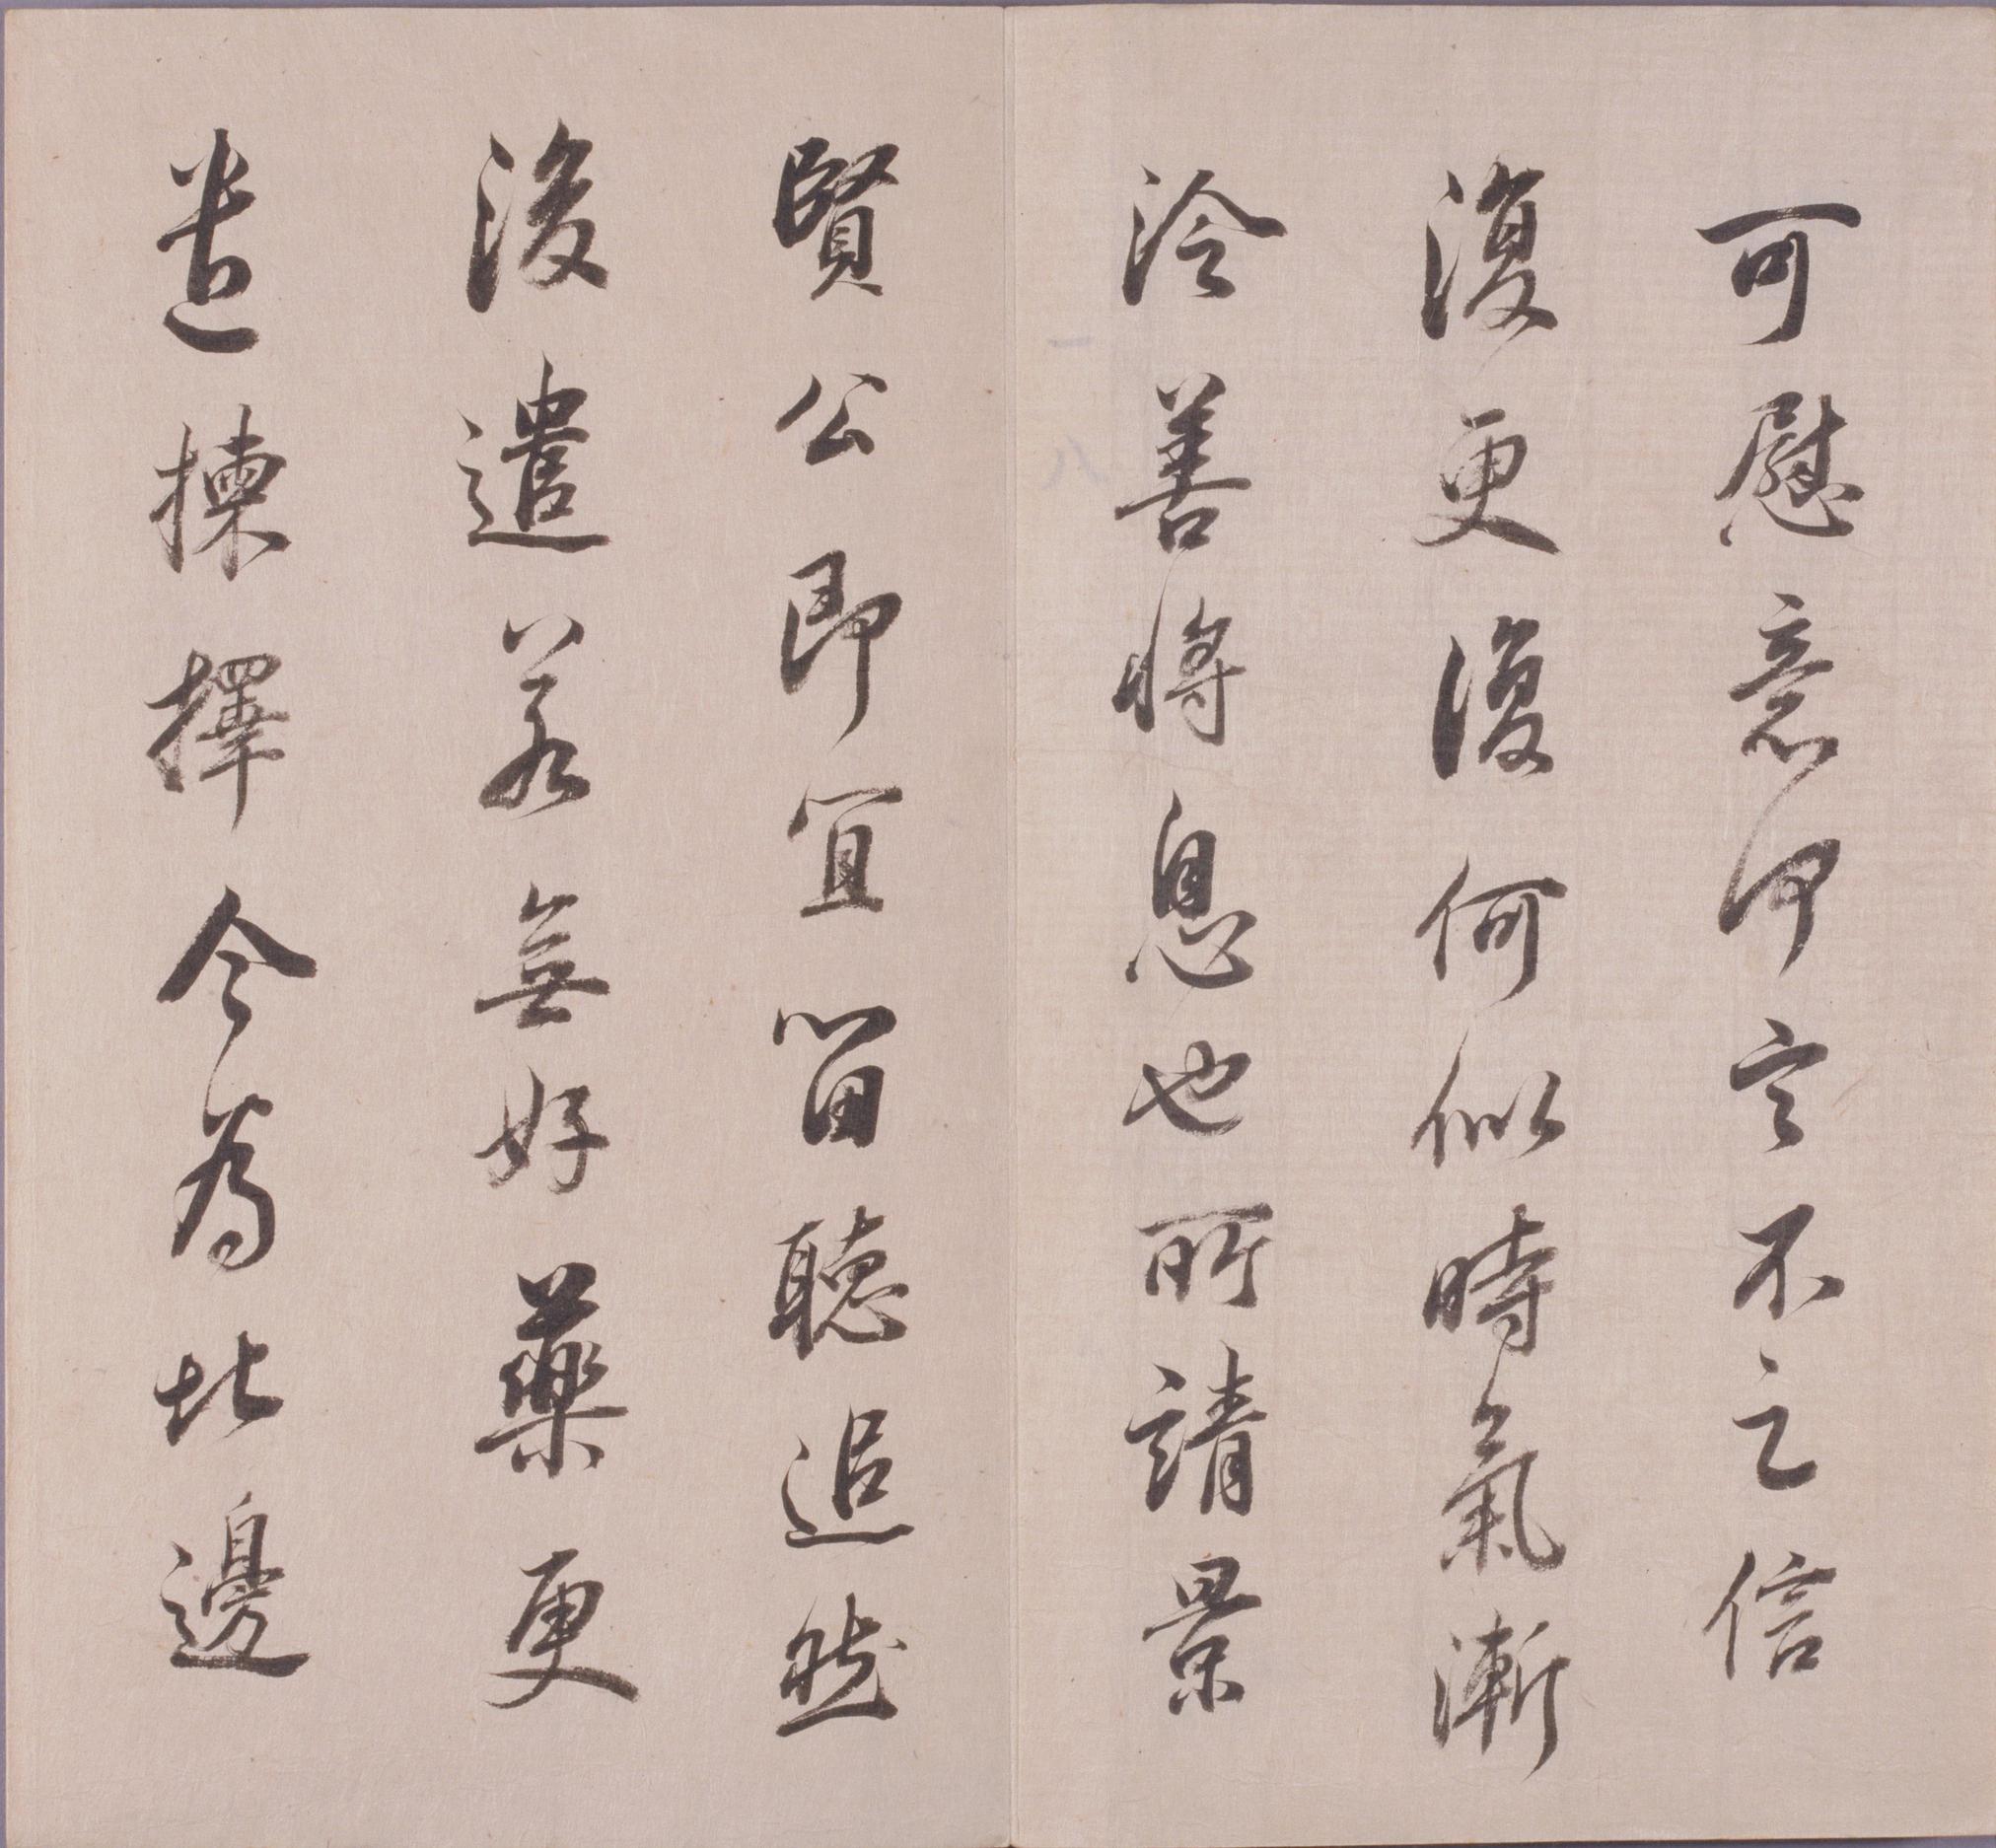 可慰意不之信
復更復何似時氣漸
冷善將息也所請景
賢公即宜留聽追然
後遣若無好藥更
遣揀擇今為此邊